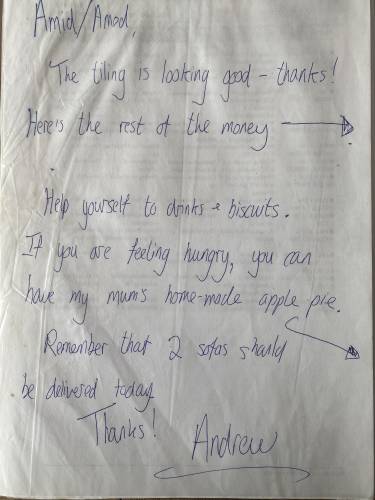 Amid/Amad,
The tiling is looking good - thanks!
Here is the rest of the money
Help yourself to drinks & biscuits.
If you are feeling hungry, you can
have my mum's home-made apple pie.
Remember that 2 sofas should
be delivered today
Thanks!
Andrew